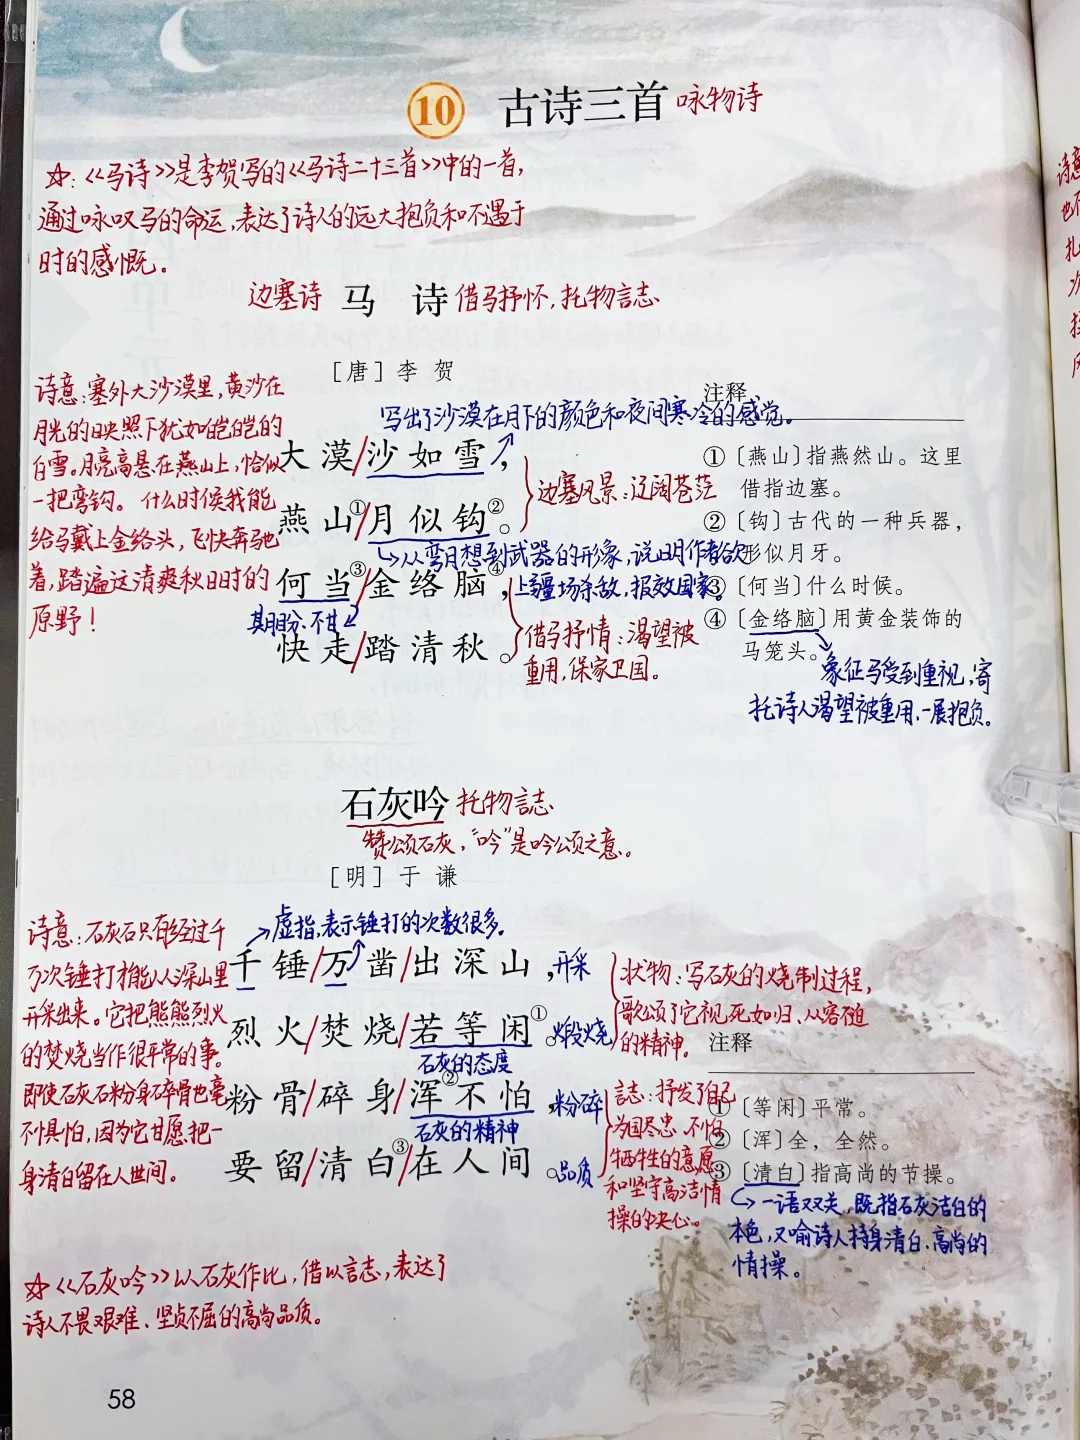 10 古诗三首 咏物诗
☆:《马诗》是李贺写的《马诗二十三首》中的一首,
通过咏叹马的命运,表达了诗人的远大抱负和不遇于
时的感慨。
边塞诗 马 诗 借马抒怀,托物言志
[唐] 李 贺
诗意:塞外大沙漠里,黄沙在
月光的映照下犹如皑皑的
白雪。月亮高悬在燕山上,恰似
一把弯钩。什么时候我能
给马戴上金络头,飞快奔驰
着,踏遍这清爽秋日时的
原野!
写出了沙漠在月下的颜色和夜间寒冷的感觉。
大漠/沙如雪,
燕山①/月似钩②。
边塞风景:辽阔苍茫
从弯月想到武器的形象,说明作者欲
上疆场杀敌,报效国家。
何当③/金络脑④,
期盼、不甘
快走/踏清秋。
借马抒情:渴望被
重用,保家卫国。
注释
①〔燕山〕指燕然山。这里
借指边塞。
②〔钩〕古代的一种兵器,
形似月牙。
③〔何当〕什么时候。
④〔金络脑〕用黄金装饰的
马笼头。
象征马受到重视,寄
托诗人渴望被重用、一展抱负。
石灰吟 托物言志
赞颂石灰,“吟”是吟颂之意。
[明] 于 谦
诗意:石灰石只有经过千
万次锤打才能从深山里
开采出来。它把熊熊烈火
的焚烧当作很平常的事。
即使石灰石粉身碎骨也毫
不惧怕,因为它甘愿把一
身清白留在人世间。
虚指,表示锤打的次数很多。
千锤/万凿/出深山,开采
烈火/焚烧/若等闲①。煅烧
石灰的态度
粉骨/碎身/浑②不怕,粉碎
石灰的精神
要留/清白③/在人间。品质
状物:写石灰的烧制过程,
歌颂了它视死如归、从容
的精神。
言志:抒发了自己
为国尽忠、不怕
牺牲的意愿
和坚守高洁情
操的决心。
注释
①〔等闲〕平常。
②〔浑〕全,全然。
③〔清白〕指高尚的节操。
一语双关,既指石灰洁白的
本色,又喻诗人持身清白、高尚的
情操。
☆《石灰吟》以石灰作比,借以言志,表达了
诗人不畏艰难、坚贞不屈的高尚品质。
58